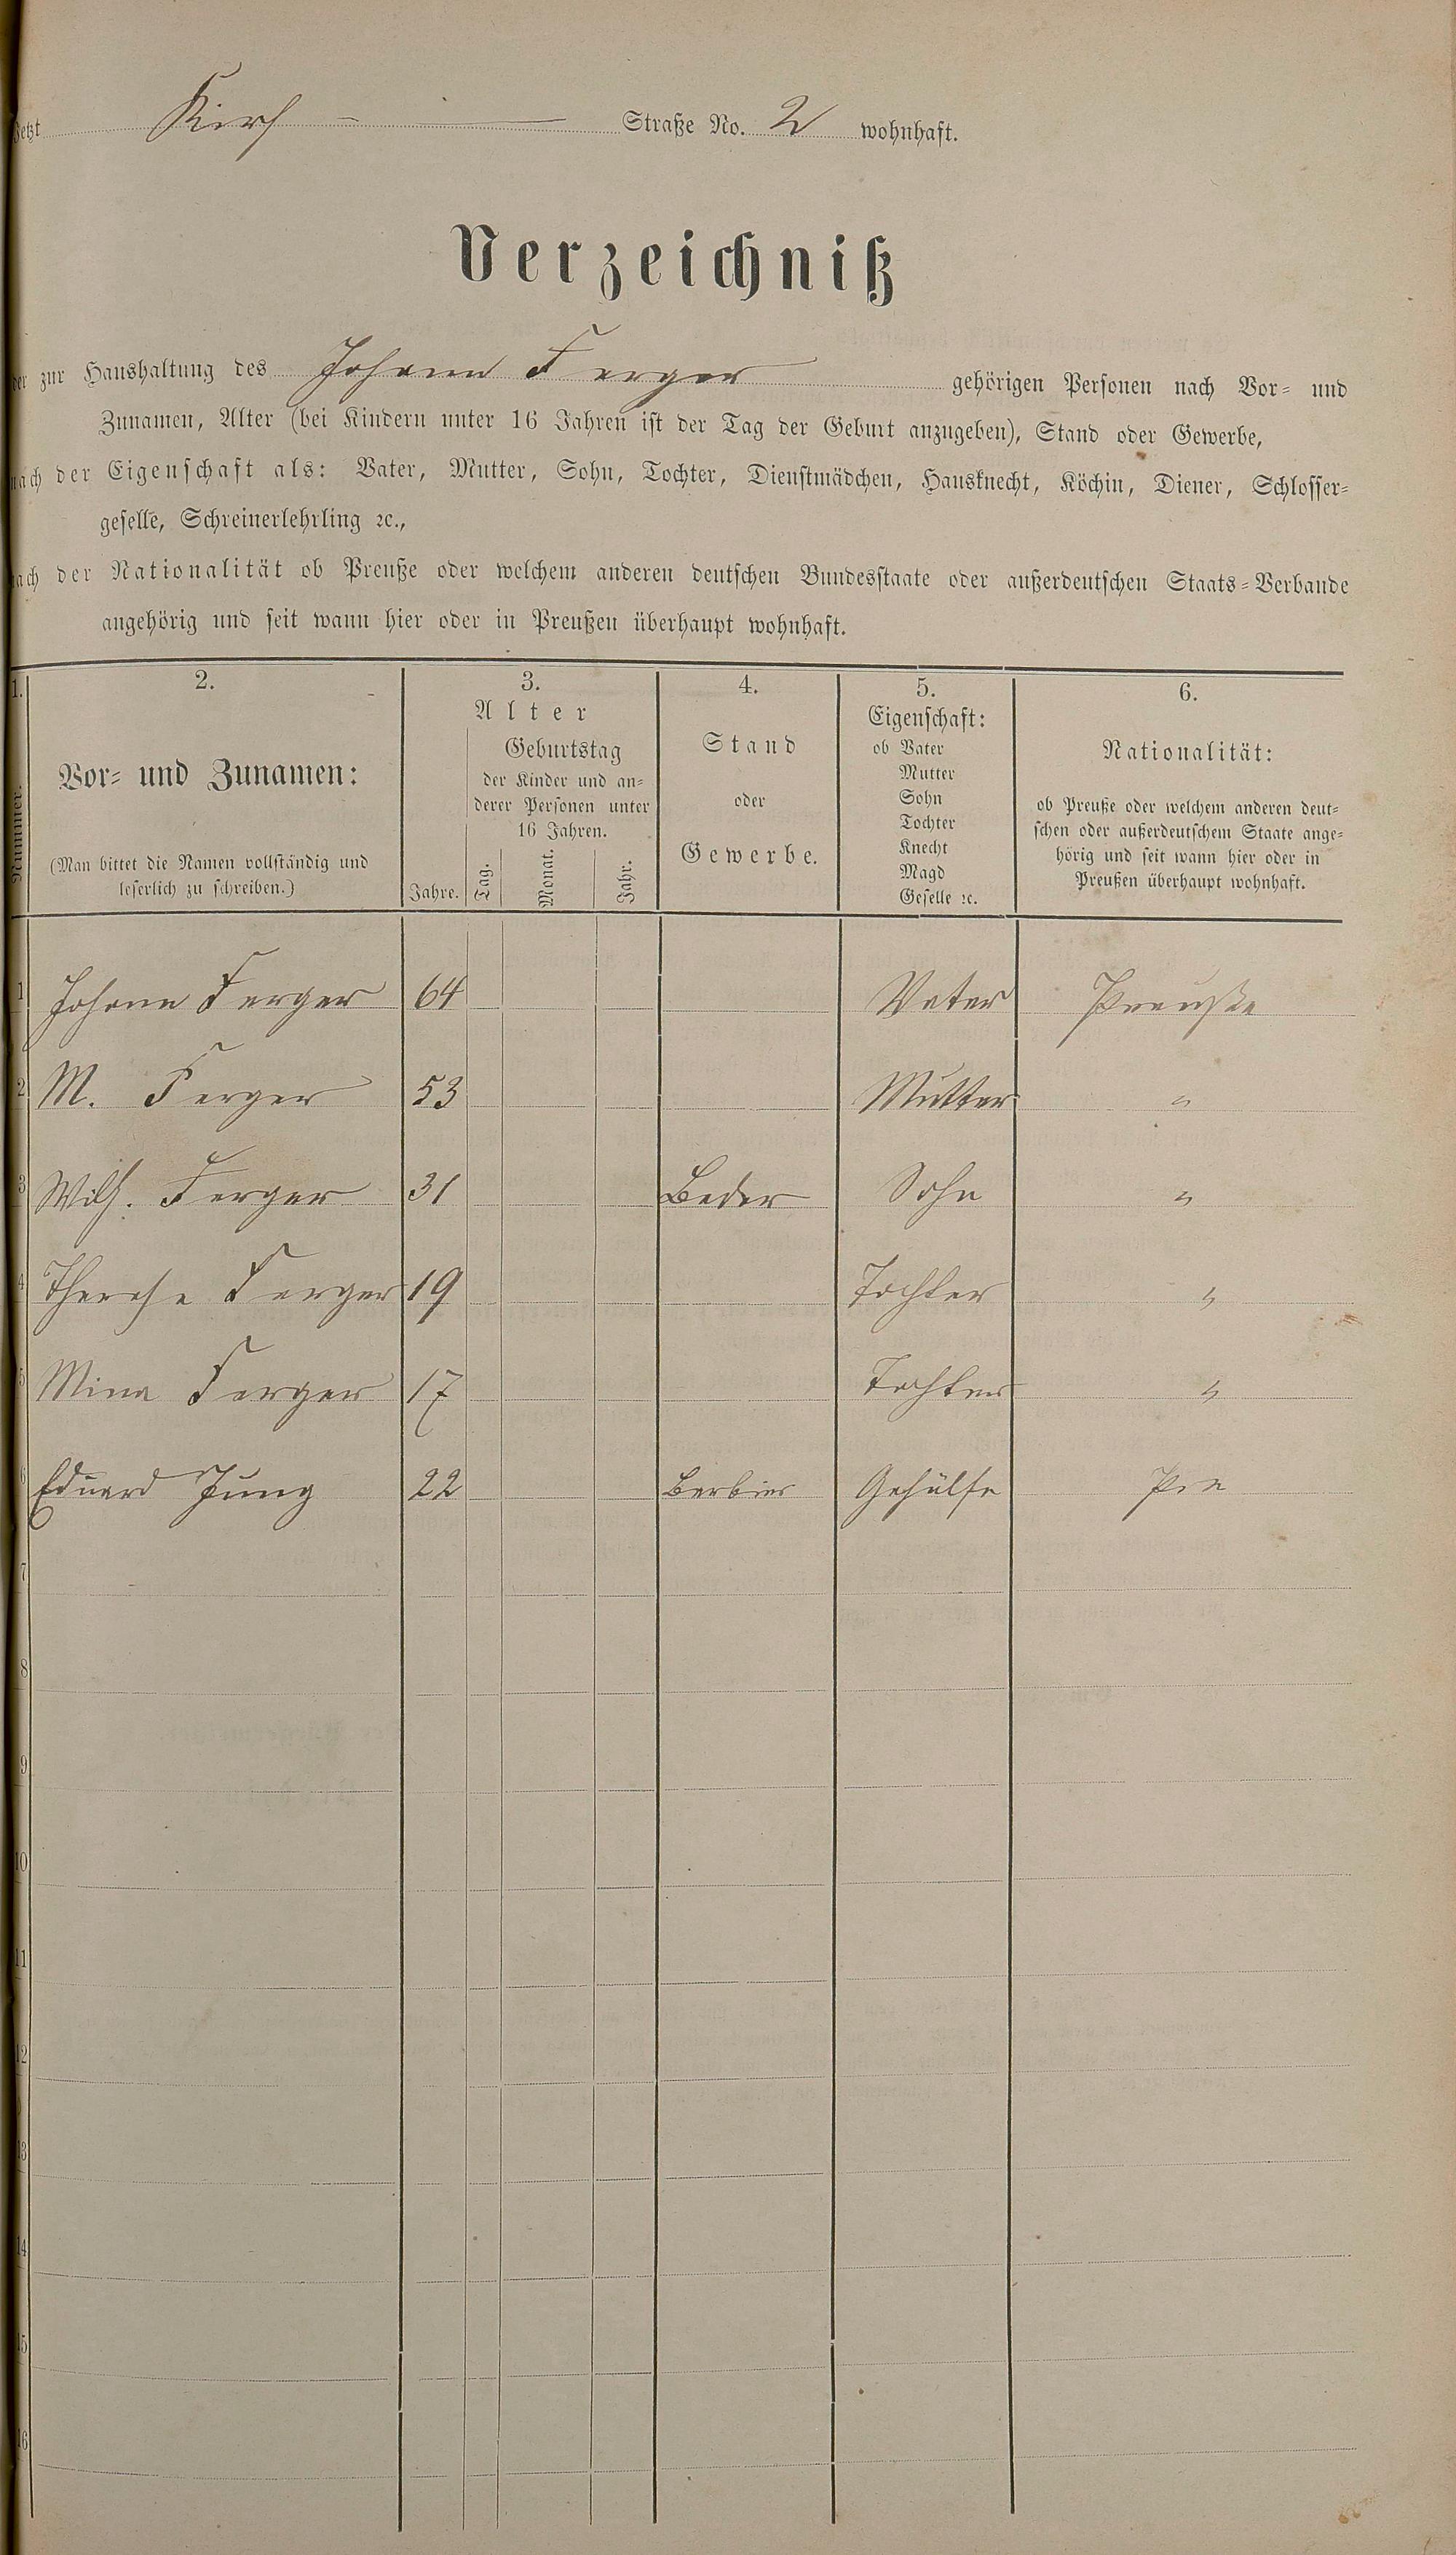 jetzt Kirch - — Straße No. 2 wohnhaft.
Verzeichniß
der zur Haushaltung des Johann Ferger gehörigen Personen nach Vor- und
Zunamen, Alter (bei Kindern unter 16 Jahren ist der Tag der Geburt anzugeben), Stand oder Gewerbe,
nach der Eigenschaft als: Vater, Mutter, Sohn, Tochter, Dienstmädchen, Hausknecht, Köchin, Diener, Schlosser-
geselle, Schreinerlehrling ꝛc.,
nach der Nationalität ob Preuße oder welchem anderen deutschen Bundesstaate oder außerdeutschen Staats-Verbande
angehörig und seit wann hier oder in Preußen überhaupt wohnhaft.
1. 2. 3. 4. 5. 6.
Nummer.
Vor- und Zunamen:
(Man bittet die Namen vollständig und
leserlich zu schreiben.)
Alter
Jahre.
Geburtstag
der Kinder und an-
derer Personen unter
16 Jahren.
Tag. Monat. Jahr.
Stand
oder
Gewerbe.
Eigenschaft:
ob Vater
Mutter
Sohn
Tochter
Knecht
Magd
Geselle ꝛc.
Nationalität:
ob Preuße oder welchem anderen deut-
schen oder außerdeutschem Staate ange-
hörig und seit wann hier oder in
Preußen überhaupt wohnhaft.
1 Johann Ferger 64 Vater Preuße
2 M. Ferger 53 Mutter "
3 Wilh. Ferger 31 Bader Sohn "
4 Therese Ferger 19 Tochter "
5 Mina Ferger 17 Tochter "
6 Eduard Jung 22 Barbier Gehülfe Pre
7
8
9
10
11
12
13
14
15
16